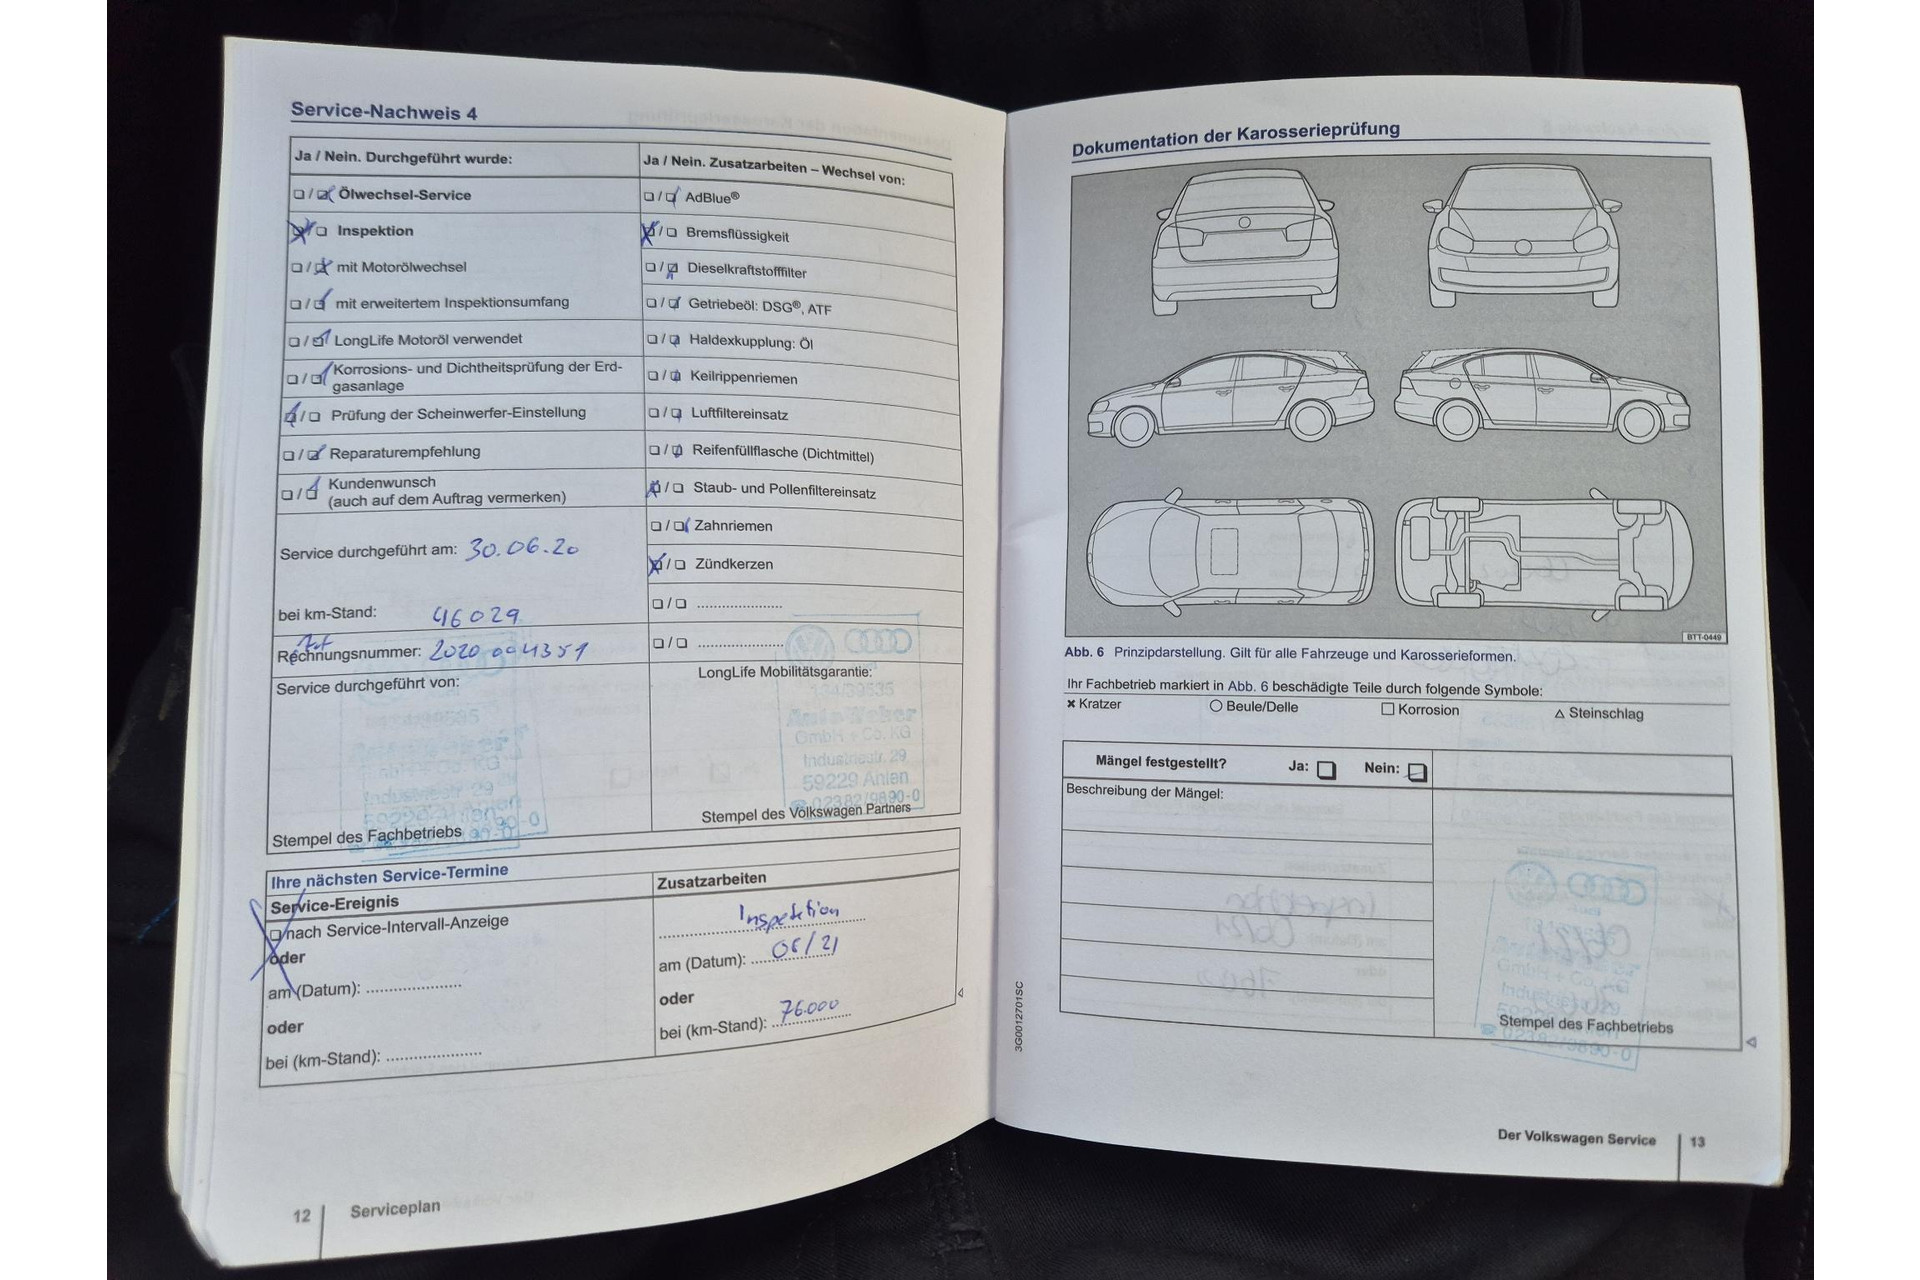 Service-Nachweis 4
Ja / Nein. Durchgeführt wurde:
Ölwechsel-Service
Inspektion
mit Motorölwechsel
mit erweitertem Inspektionsumfang
LongLife Motoröl verwendet
Korrosions- und Dichtheitsprüfung der Erd-
gasanlage
Prüfung der Scheinwerfer-Einstellung
Reparaturempfehlung
Kundenwunsch
(auch auf dem Auftrag vermerken)
Service durchgeführt am: 30.06.20
bei km-Stand: 46029
Rechnungsnummer: 2020 004351
Service durchgeführt von:
Industriestr. 29
Stempel des Fachbetriebs
Ja / Nein. Zusatzarbeiten – Wechsel von:
AdBlue®
Bremsflüssigkeit
Dieselkraftstofffilter
Getriebeöl: DSG®, ATF
Haldexkupplung: Öl
Keilrippenriemen
Luftfiltereinsatz
Reifenfüllflasche (Dichtmittel)
Staub- und Pollenfiltereinsatz
Zahnriemen
Zündkerzen
LongLife Mobilitätsgarantie:
Auto Weber
GmbH + Co. KG
Industriestr. 29
59229 Ahlen
02382/9890-0
Stempel des Volkswagen Partners
Ihre nächsten Service-Termine
Service-Ereignis
nach Service-Intervall-Anzeige
oder
am (Datum):
oder
bei (km-Stand):
Zusatzarbeiten
Inspektion
am (Datum): 06/21
oder
bei (km-Stand): 76.000
12
Serviceplan
Dokumentation der Karosserieprüfung
BTT-0449
Abb. 6 Prinzipdarstellung. Gilt für alle Fahrzeuge und Karosserieformen.
Ihr Fachbetrieb markiert in Abb. 6 beschädigte Teile durch folgende Symbole:
Kratzer Beule/Delle Korrosion Steinschlag
Mängel festgestellt? Ja: Nein:
Beschreibung der Mängel:
Stempel des Fachbetriebs
3G0012701SC
Der Volkswagen Service 13